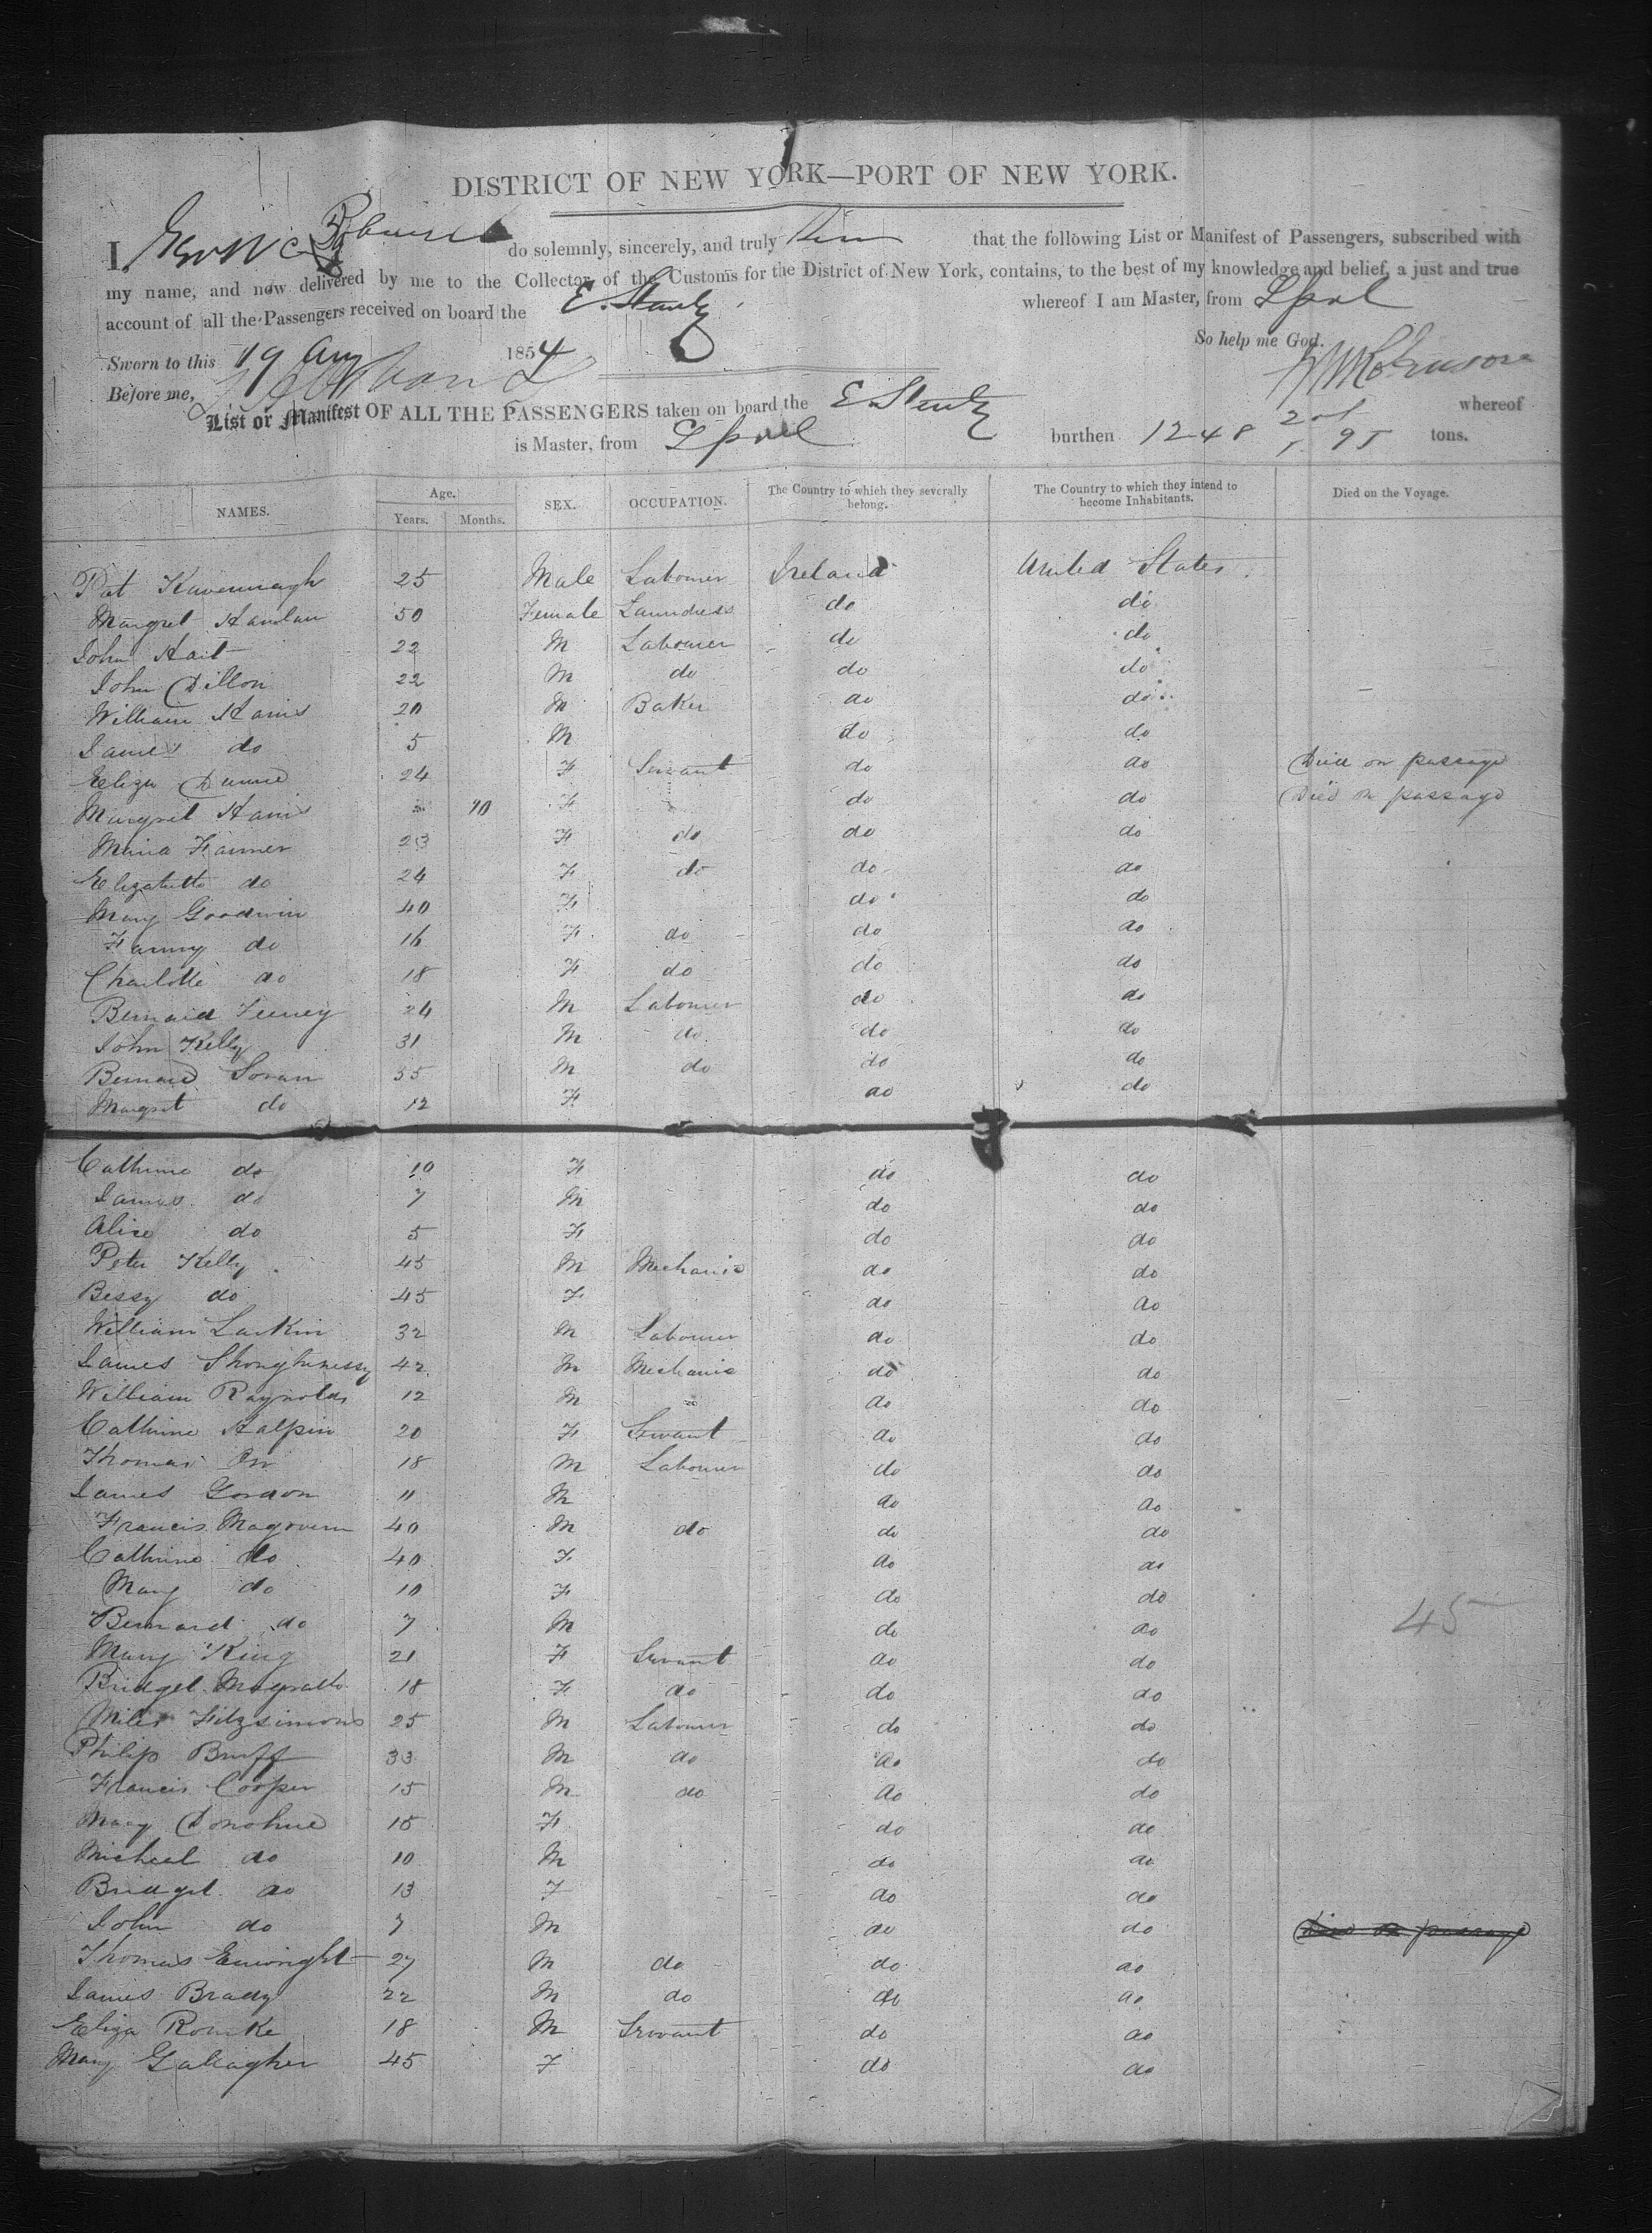 DISTRICT OF NEW YORK—PORT OF NEW YORK.
I, do solemnly, sincerely, and truly that the following List or Manifest of Passengers, subscribed with
my name, and now delivered by me to the Collector of the Customs for the District of New York, contains, to the best of my knowledge and belief, a just and true
account of all the Passengers received on board the E. Stamler whereof I am Master, from Lpool
So help me God.
Sworn to this 19 Aug 1854
Before me,
List or Manifest OF ALL THE PASSENGERS taken on board the E. whereof
is Master, from Lpool burthen 1248 95 tons.
NAMES. Age. Years. Months. SEX. OCCUPATION. The Country to which they severally belong. The Country to which they intend to become Inhabitants. Died on the Voyage.
Pat Kavennagh 25 Male Labourer Ireland United States.
Margret Hanlan 50 Female Laundress do do
John Hart 22 M Labourer do do
John Dillon 22 M do do do
William Harris 20 M Baker do do
James do 5 M do do
Eliza Dunne 24 F Servant do do Died on passage
Margret Harris 10 F do do Died on passage
Maria Farmer 23 F do do do
Elizabeth do 24 F do do do
Mary Goodwin 40 F do do
Fanny do 16 F do do do
Charlotte do 18 F do do do
Bernard Feeney 24 M Labourer do do
John Kelly 31 M do do do
Bernard Soran 35 M do do do
Margret do 12 F do do
Cathrine do 10 F do do
James do 7 M do do
Alice do 5 F do do
Peter Kelly 45 M Mechanic do do
Bessy do 45 F do do
William Larkin 32 M Labourer do do
James Shoughnessy 42 M Mechanic do do
William Raynolds 12 M do do
Cathrine Halpin 20 F Servant do do
Thomas Orr 18 M Labourer do do
James Gordon 11 M do do
Francis Magovern 40 M do do do
Cathrine do 40 F do do
Mary do 10 F do do
Bernard do 7 M do do
Mary King 21 F Servant do do
Bridget Magrath 18 F do do do
Miles Fitzsimons 25 M Labourer do do
Philip Bruff 33 M do do do
Francis Cooper 15 M do do do
Mary Donohue 15 F do do
Micheal do 10 M do do
Bridget do 13 F do do
John do 7 M do do Died on passage
Thomas Enwright 27 M do do do
James Brady 22 M do do do
Eliza Rourke 18 M Servant do do
Mary Gallagher 45 F do do
45